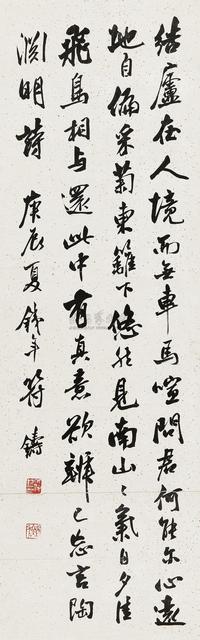 结庐在人境而无車馬喧問君何能尔心遠
地自偏采菊東籬下悠然見南山山氣日夕佳
飛鳥相与還此中有真意欲辨已忘言陶
淵明詩 庚辰夏 錢年 符鑄